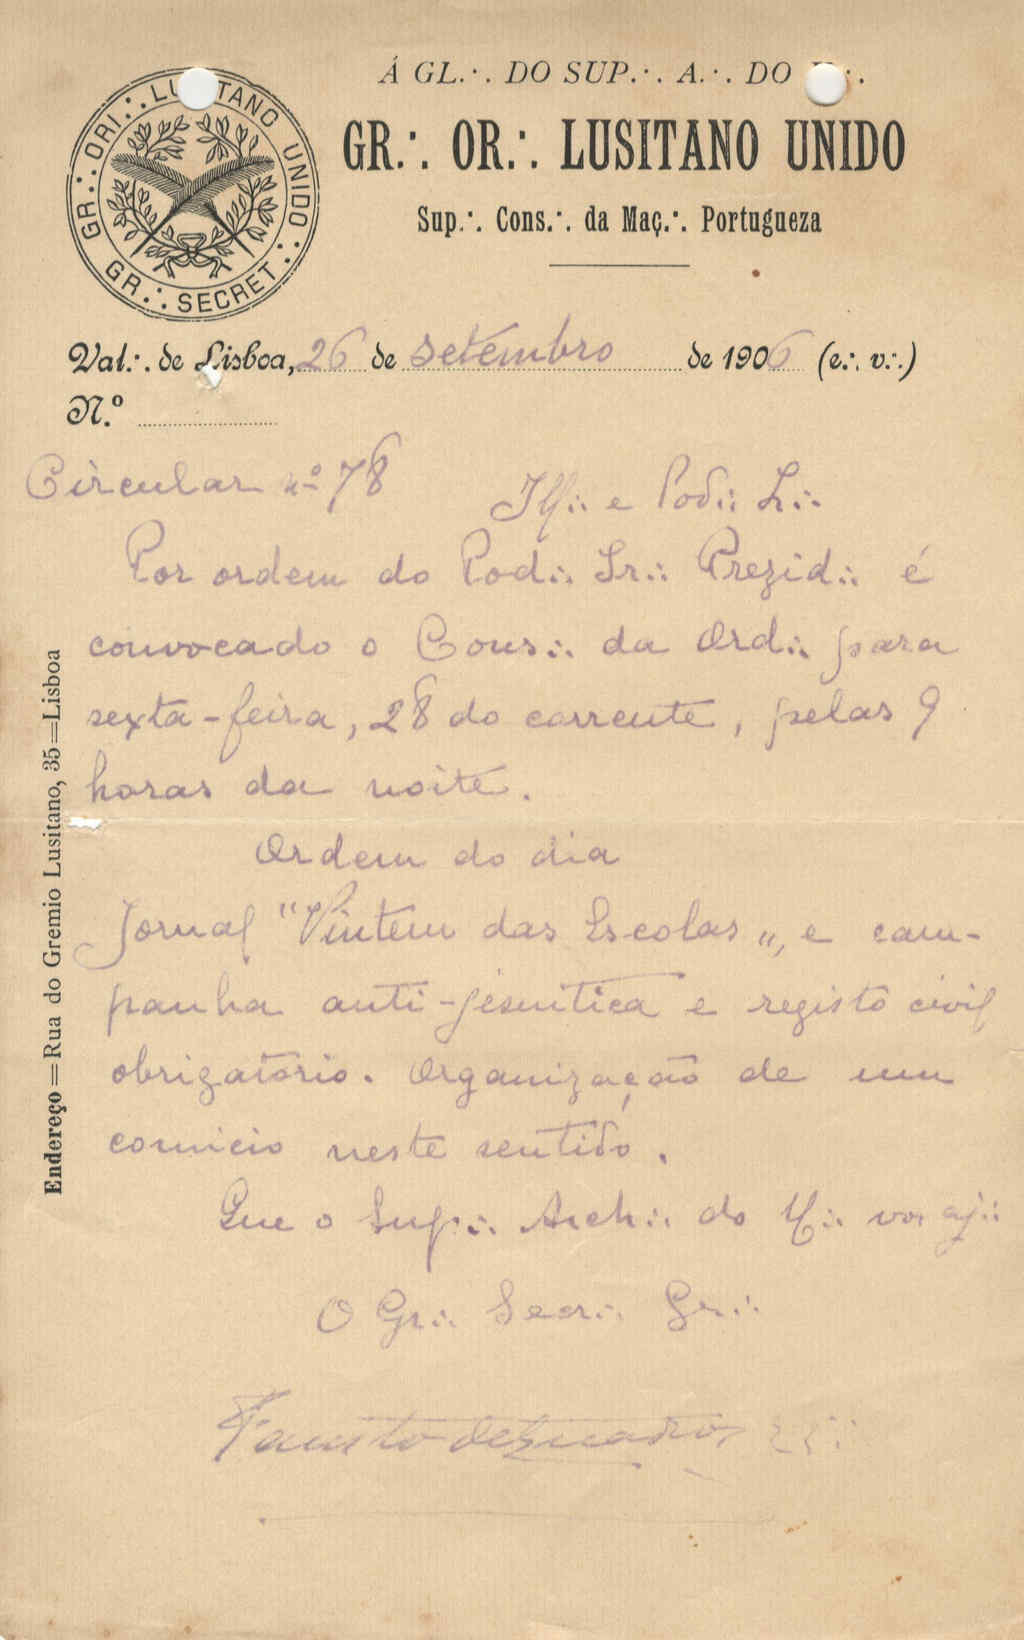 Á GL.·. DO SUP.·. A.·. DO
GR.·. OR.·. LUSITANO UNIDO
Sup.·. Cons.·. da Maç.·. Portugueza
GR.·. ORI.·. LUSITANO UNIDO.·.
GR.·. SECRET.·.
Val.·. de Lisboa, 26 de setembro de 1906 (e.·. v.·.)
N.º
Circular nº 78
Ill.·. e Pod.·. Ir.·.
Por ordem do Pod.·. Ir.·. Prezid.·. é
convocado o Cons.·. da Ord.·. para
sexta-feira, 28 do corrente, pelas 9
horas da noite.
Ordem do dia
Jornal "Vintem das Escolas", e cam-
panha anti-jesuitica e registo civil
obrigatorio. Organização de um
comicio neste sentido.
Que o Sup.·. Arch.·. do U.·. vos aj.·.
O Gr.·. Secr.·. Ger.·.
Fausto de Quadros
Endereço = Rua do Gremio Lusitano, 35 = Lisboa